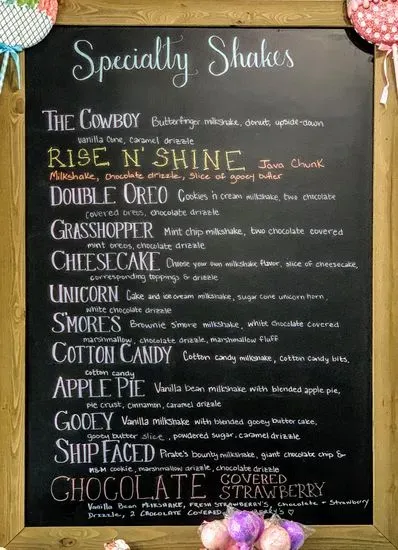 Specialty Shakes
THE COWBOY Butterfinger milkshake, donut, upside-down
vanilla cone, caramel drizzle
RISE N' SHINE Java Chunk
Milkshake, chocolate drizzle, slice of gooey butter
DOUBLE OREO Cookies 'n cream milkshake, two chocolate
covered oreos, chocolate drizzle
GRASSHOPPER Mint chip milkshake, two chocolate covered
mint oreos, chocolate drizzle
CHEESECAKE Choose your own milkshake flavor, slice of cheesecake,
corresponding toppings & drizzle
UNICORN Cake and ice cream milkshake, sugar cone unicorn horn,
white chocolate drizzle
S'MORES Brownie S'more milkshake, white chocolate covered
marshmallow, chocolate drizzle, marshmallow fluff
COTTON CANDY Cotton candy milkshake, cotton candy bits,
cotton candy
APPLE PIE Vanilla bean milkshake with blended apple pie,
pie crust, cinnamon, caramel drizzle
GOOEY Vanilla milkshake with blended gooey butter cake,
gooey butter slice, powdered sugar, caramel drizzle
SHIP FACED Pirate's bounty milkshake, giant chocolate chip &
M&M cookie, marshmallow drizzle, chocolate drizzle
CHOCOLATE COVERED STRAWBERRY
Vanilla Bean MILKSHAKE, FRESH STRAWBERRY'S, Chocolate + Strawberry
Drizzle, 2 CHOCOLATE COVERED